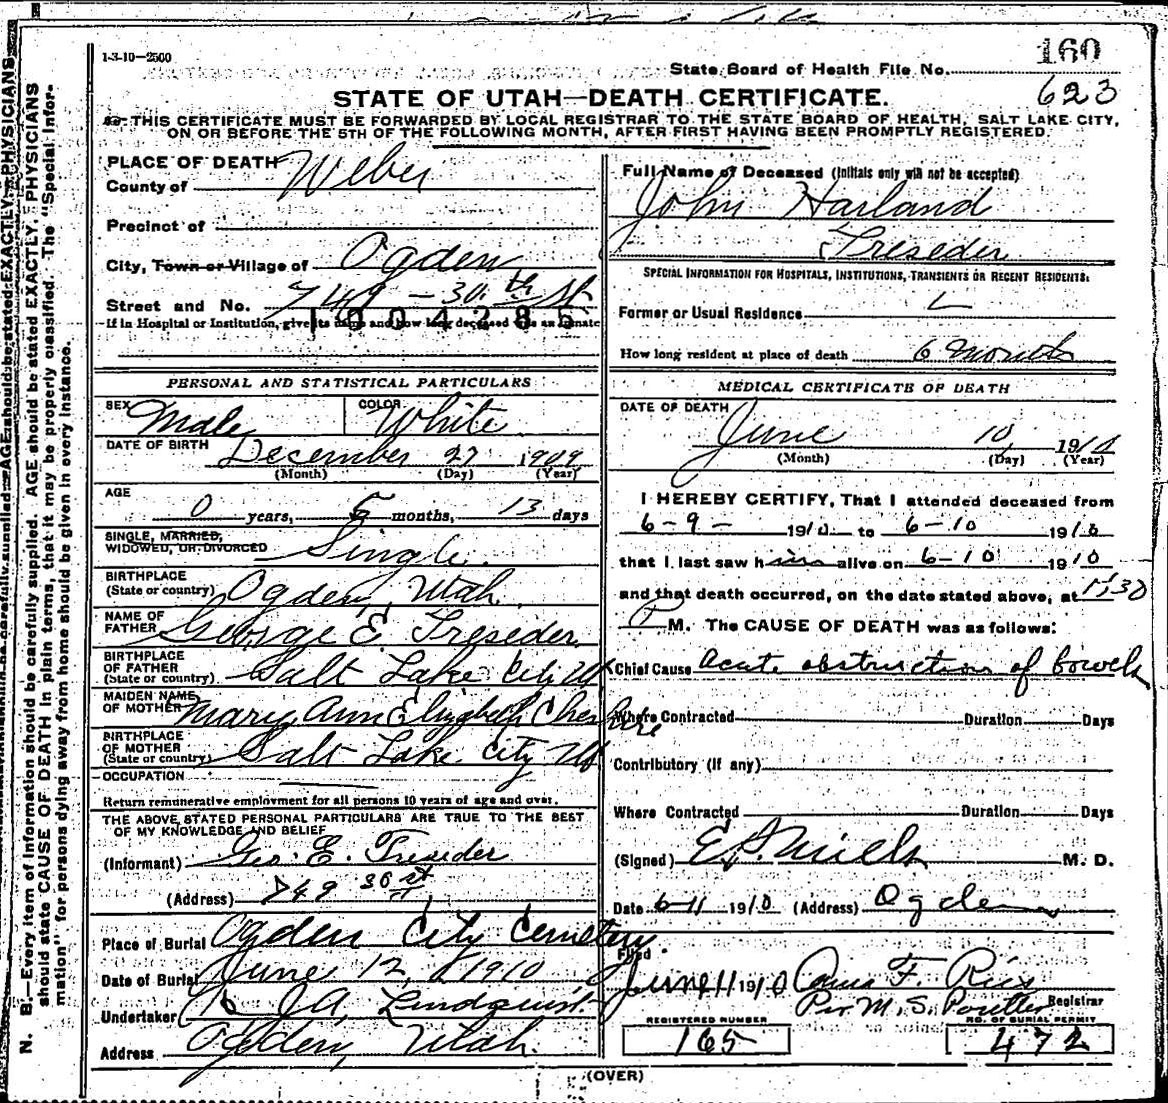 1-3-10—2500
160
State Board of Health File No.
623
STATE OF UTAH—DEATH CERTIFICATE.
THIS CERTIFICATE MUST BE FORWARDED BY LOCAL REGISTRAR TO THE STATE BOARD OF HEALTH, SALT LAKE CITY,
ON OR BEFORE THE 5TH OF THE FOLLOWING MONTH, AFTER FIRST HAVING BEEN PROMPTLY REGISTERED.
N. B.—Every item of information should be carefully supplied. AGE should be stated EXACTLY. PHYSICIANS
should state CAUSE OF DEATH in plain terms, that it may be properly classified. The "Special Infor-
mation" for persons dying away from home should be given in every instance.
PLACE OF DEATH
County of Weber
Precinct of
City, Town or Village of Ogden
Street and No. 749 - 30th St
1004285
If in Hospital or Institution, give its name and how long deceased was an inmate
PERSONAL AND STATISTICAL PARTICULARS
SEX Male COLOR White
DATE OF BIRTH December 27 1909
(Month) (Day) (Year)
AGE
0 years, 5 months, 13 days
SINGLE, MARRIED,
WIDOWED, OR DIVORCED Single
BIRTHPLACE
(State or country) Ogden Utah.
NAME OF
FATHER George E. Treseder
BIRTHPLACE
OF FATHER
(State or country) Salt Lake City Ut
MAIDEN NAME
OF MOTHER Mary Ann Elizabeth Cheshire
BIRTHPLACE
OF MOTHER
(State or country) Salt Lake City Ut
OCCUPATION
Return remunerative employment for all persons 10 years of age and over.
THE ABOVE STATED PERSONAL PARTICULARS ARE TRUE TO THE BEST
OF MY KNOWLEDGE AND BELIEF
(Informant) Geo. E. Treseder
(Address) 749 30 st
Place of Burial Ogden City Cemetery.
Date of Burial June 12, 1910
Undertaker J A Lindquist.
Address Ogden, Utah.
Full Name of Deceased (Initials only will not be accepted)
John Harland
Treseder
SPECIAL INFORMATION FOR HOSPITALS, INSTITUTIONS, TRANSIENTS OR RECENT RESIDENTS.
Former or Usual Residence
How long resident at place of death 6 months
MEDICAL CERTIFICATE OF DEATH
DATE OF DEATH
June 10, 1910
(Month) (Day) (Year)
I HEREBY CERTIFY, That I attended deceased from
6-9- 1910 to 6-10 1910
that I last saw him alive on 6-10 1910
and that death occurred, on the date stated above, at
P M. The CAUSE OF DEATH was as follows:
Chief Cause Acute obstruction of bowels
Where Contracted Duration Days
Contributory (if any)
Where Contracted Duration Days
(Signed) M. D.
Date 6-11 1910 (Address) Ogden
Filed
June 11 1910 F.
Per M. S. Registrar
REGISTERED NUMBER NO. OF BURIAL PERMIT
165 472
(OVER)